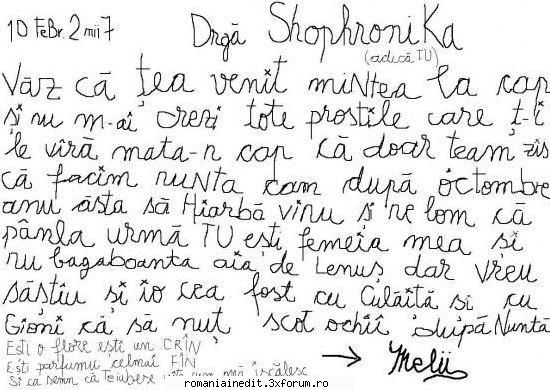 10 FeBr. 2 mii 7 Drgă ShophroniKa
(adică TU)
Văz că ţea venit miNtea la cap
şi nu m-ai crezi tote prostile care ţ-i
le vîră mata-n cap că doar team zis
că facim nuNta cam după octombre
anu ăsta să Hiarbă vinu şi ne lom că
pânla urmă TU eşti femeia mea şi
nu bagaboanta aia de Lenuş dar vreu
săştiu şi io cea fost cu Culăită şi cu
Gioni că să nuţ scot ochii dupăNuntă
Eşti o flore eşti un CRÎN
Eşti parfumu celmai FIN → Melii
Şi ca semn că Teiubesc mă iscălesc
romaniainedit.3xforum.ro